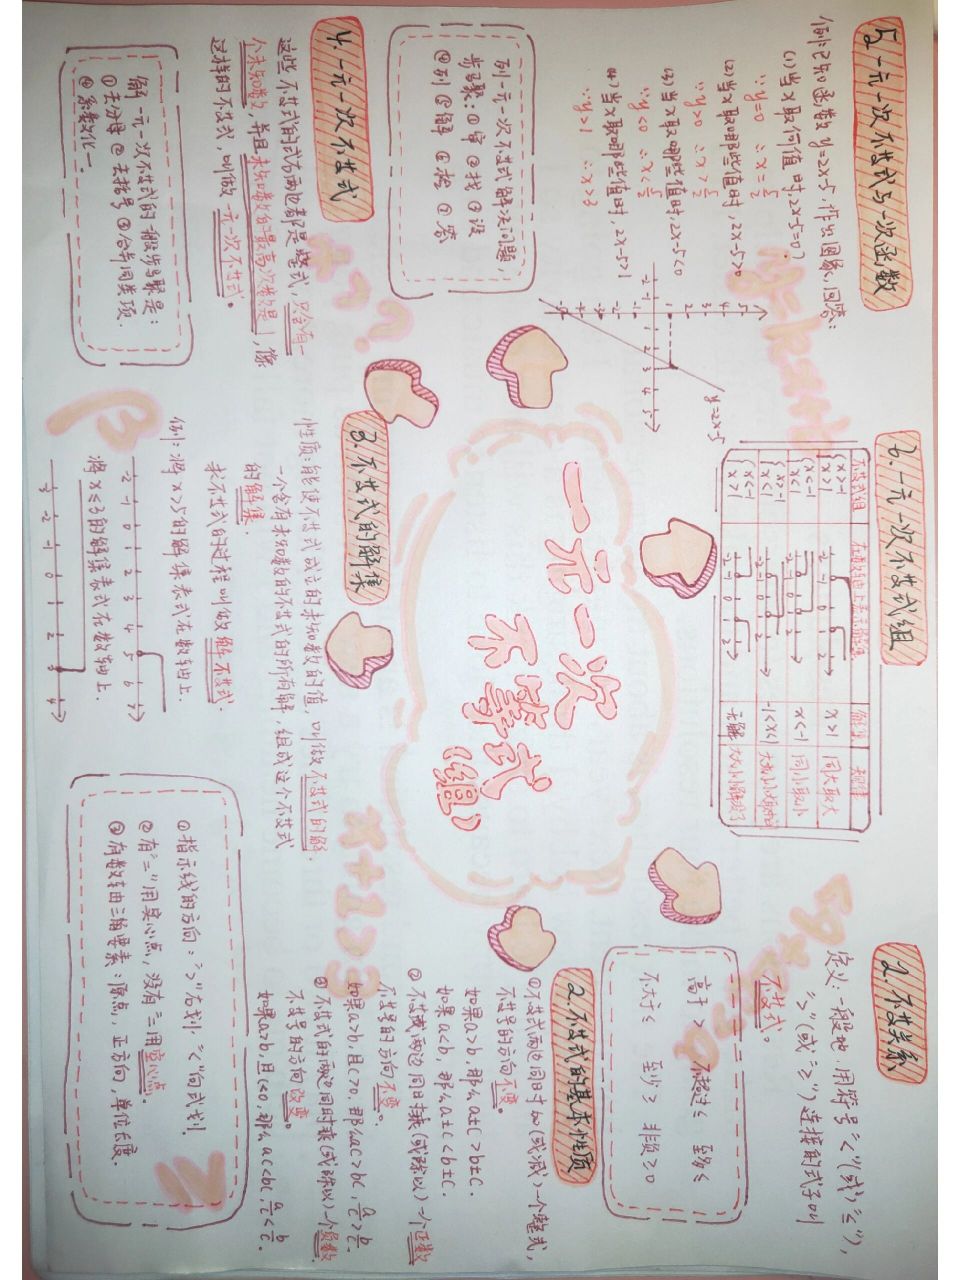 一元一次
不等式
(组)
1.不等关系
定义:一般地,用符号"<"(或"≤"),
">"(或"≥")连接的式子叫
不等式。
高于 > 不超过≤ 至多≤
不大于≤ 至少≥ 非负≥0
2.不等式的基本性质
①不等式两边同时加(或减)一个整式,
不等号的方向不变。
如果a>b,那么a±c>b±c.
如果a<b,那么a±c<b±c.
②不等式两边同时乘(或除以)一个正数
不等号的方向不变。
如果a>b,且c>0,那么ac>bc,a/c>b/c.
③不等式的两边同时乘(或除以)一个负数
不等号的方向改变。
如果a>b,且c<0,那么ac<bc,a/c<b/c.
3.不等式的解集
性质:能使不等式成立的未知数的值,叫做不等式的解.
一个含有未知数的不等式的所有解,组成这个不等式
的解集.
求不等式的过程叫做解不等式.
例:将x>5的解集表式在数轴上.
-2 -1 0 1 2 3 4 5 6 7
将x≤3的解集表式在数轴上.
-3 -2 -1 0 1 2 3 4
①指示线的方向:">"右划"<"向左划.
②有"="用实心点,没有"="用空心点.
③有数轴三要素:原点,正方向,单位长度.
4.一元一次不等式
这些不等式的式右两边都是整式,只含有一
个未知数,并且未知数的最高次数是1,像
这样的不等式,叫做一元一次不等式。
解一元一次不等式的一般步骤是:
①去分母 ②去括号 ③合并同类项.
④系数化一.
列一元一次不等式解决问题,
步骤:①审 ②找 ③设
④列 ⑤解 ⑥检 ⑦答
5.一元一次不等式与一次函数
例:已知函数y=2x-5,作出图象,回答:
(1)当x取何值时,2x-5=0?
∵y=0 ∴x=5/2
(2)当x取哪些值时,2x-5>0
∵y>0 ∴x>5/2
(3)当x取哪些值时,2x-5<0
∵y<0 ∴x<5/2
(4)当x取哪些值时,2x-5>1
∵y>1 ∴x>3
y=2x-5
6.一元一次不等式组
不等式组 在数轴上表示解集 解集 规律
{x>-1 x>1 x>1 同大取大
{x<-1 x<1 x<-1 同小取小
{x>-1 x<1 -1<x<1
{x<-1 x>1 无解